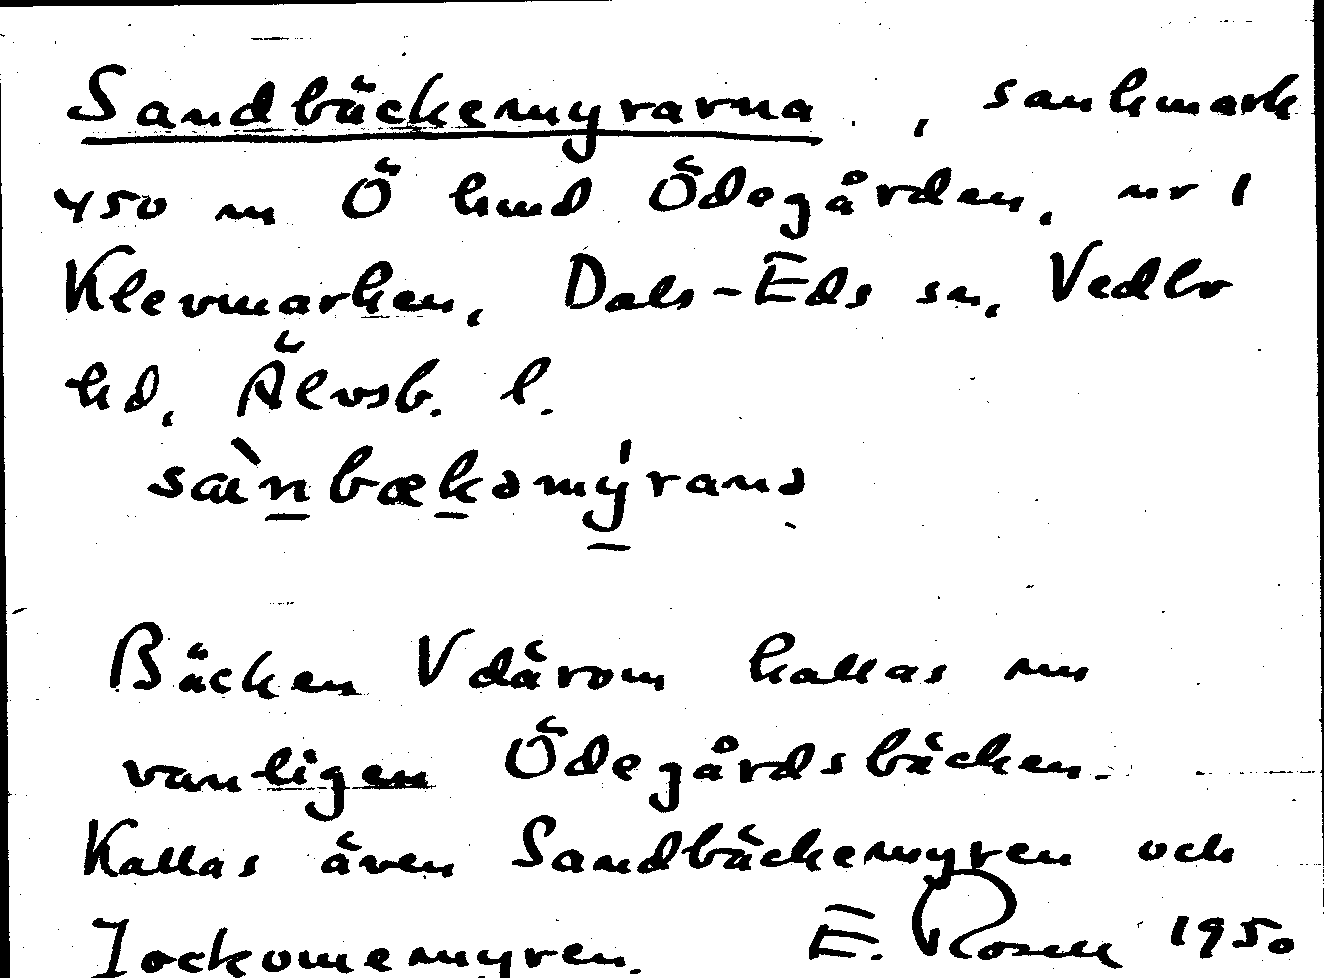 Sandbäckemyrarna, sankmark
450 m Ö hmd Ödegården, nr 1
Klevmarken, Dals-Eds sn, Vedbo
hd, Älvsb. l.
sæ̀n̲bæk̲əmý̲ranə
Bäcken V därom kallas nu
vanligen Ödegårdsbäcken.
Kallas även Sandbäckemyren och
Jockomemyren. E. Rosell 1950